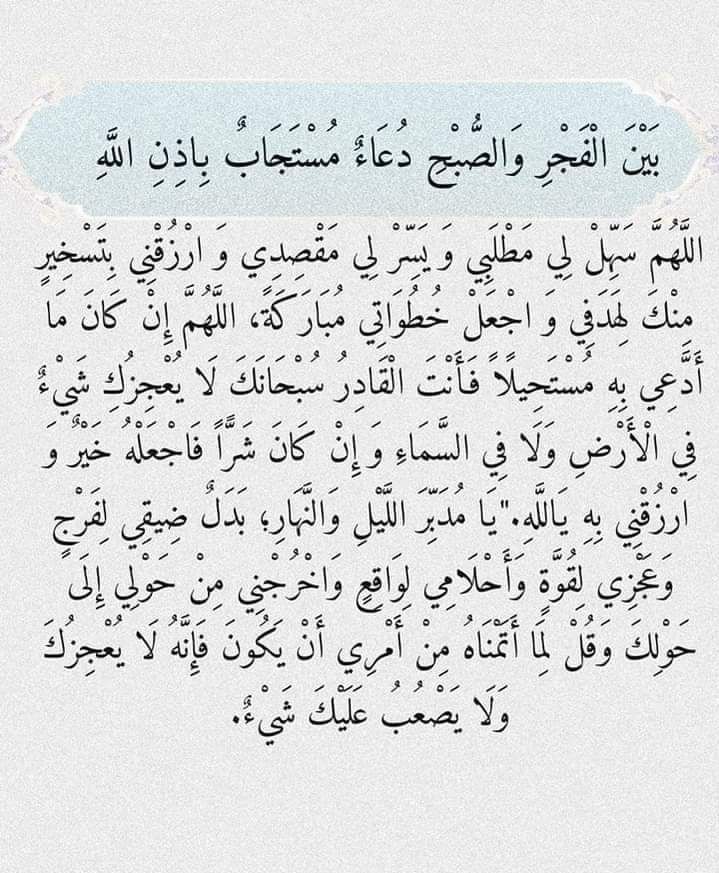 بَيْنَ الْفَجْرِ وَالصُّبْحِ دُعَاءٌ مُسْتَجَابٌ بِاِذِنِ اللَّهِ
اللَّهُمَّ سَهِّلْ لِي مَطْلَبِي وَ يَسِّرْ لِي مَقْصِدِي وَ ارْزُقْنِي بِتَسْخِيرٍ
مِنْكَ لِهَدَفِي وَ اجْعَلْ خُطُوَاتِي مُبَارَكَةً، اللَّهُمَّ إِنْ كَانَ مَا
أَدَّعِي بِهِ مُسْتَحِيلًا فَأَنْتَ الْقَادِرُ سُبْحَانَكَ لَا يُعْجِزُكِ شَيْءٌ
فِي الْأَرْضِ وَلَا فِي السَّمَاءِ وَ إِنْ كَانَ شَرًّا فَاجْعَلْهُ خَيْرٌ وَ
ارْزُقْنِي بِهِ يَاللَّهِ."يَا مُدَبِّرَ اللَّيْلِ وَالنَّهَارِ؛ بَدَلٌ ضِيقِي لِفَرْجٍ
وَعَجْزِي لِقُوَّةٍ وَأَحْلَامِي لِوَاقِعٍ وَاخْرُجْنِي مِنْ حَوْلِي إِلَى
حَوْلِكَ وَقُلْ لِمَا أَتَمْنَاهُ مِنْ أَمْرِي أَنْ يَكُونَ فَإِنَّهُ لَا يُعْجِزُكَ
وَلَا يَصْعُبُ عَلَيْكَ شَيْءٌ.